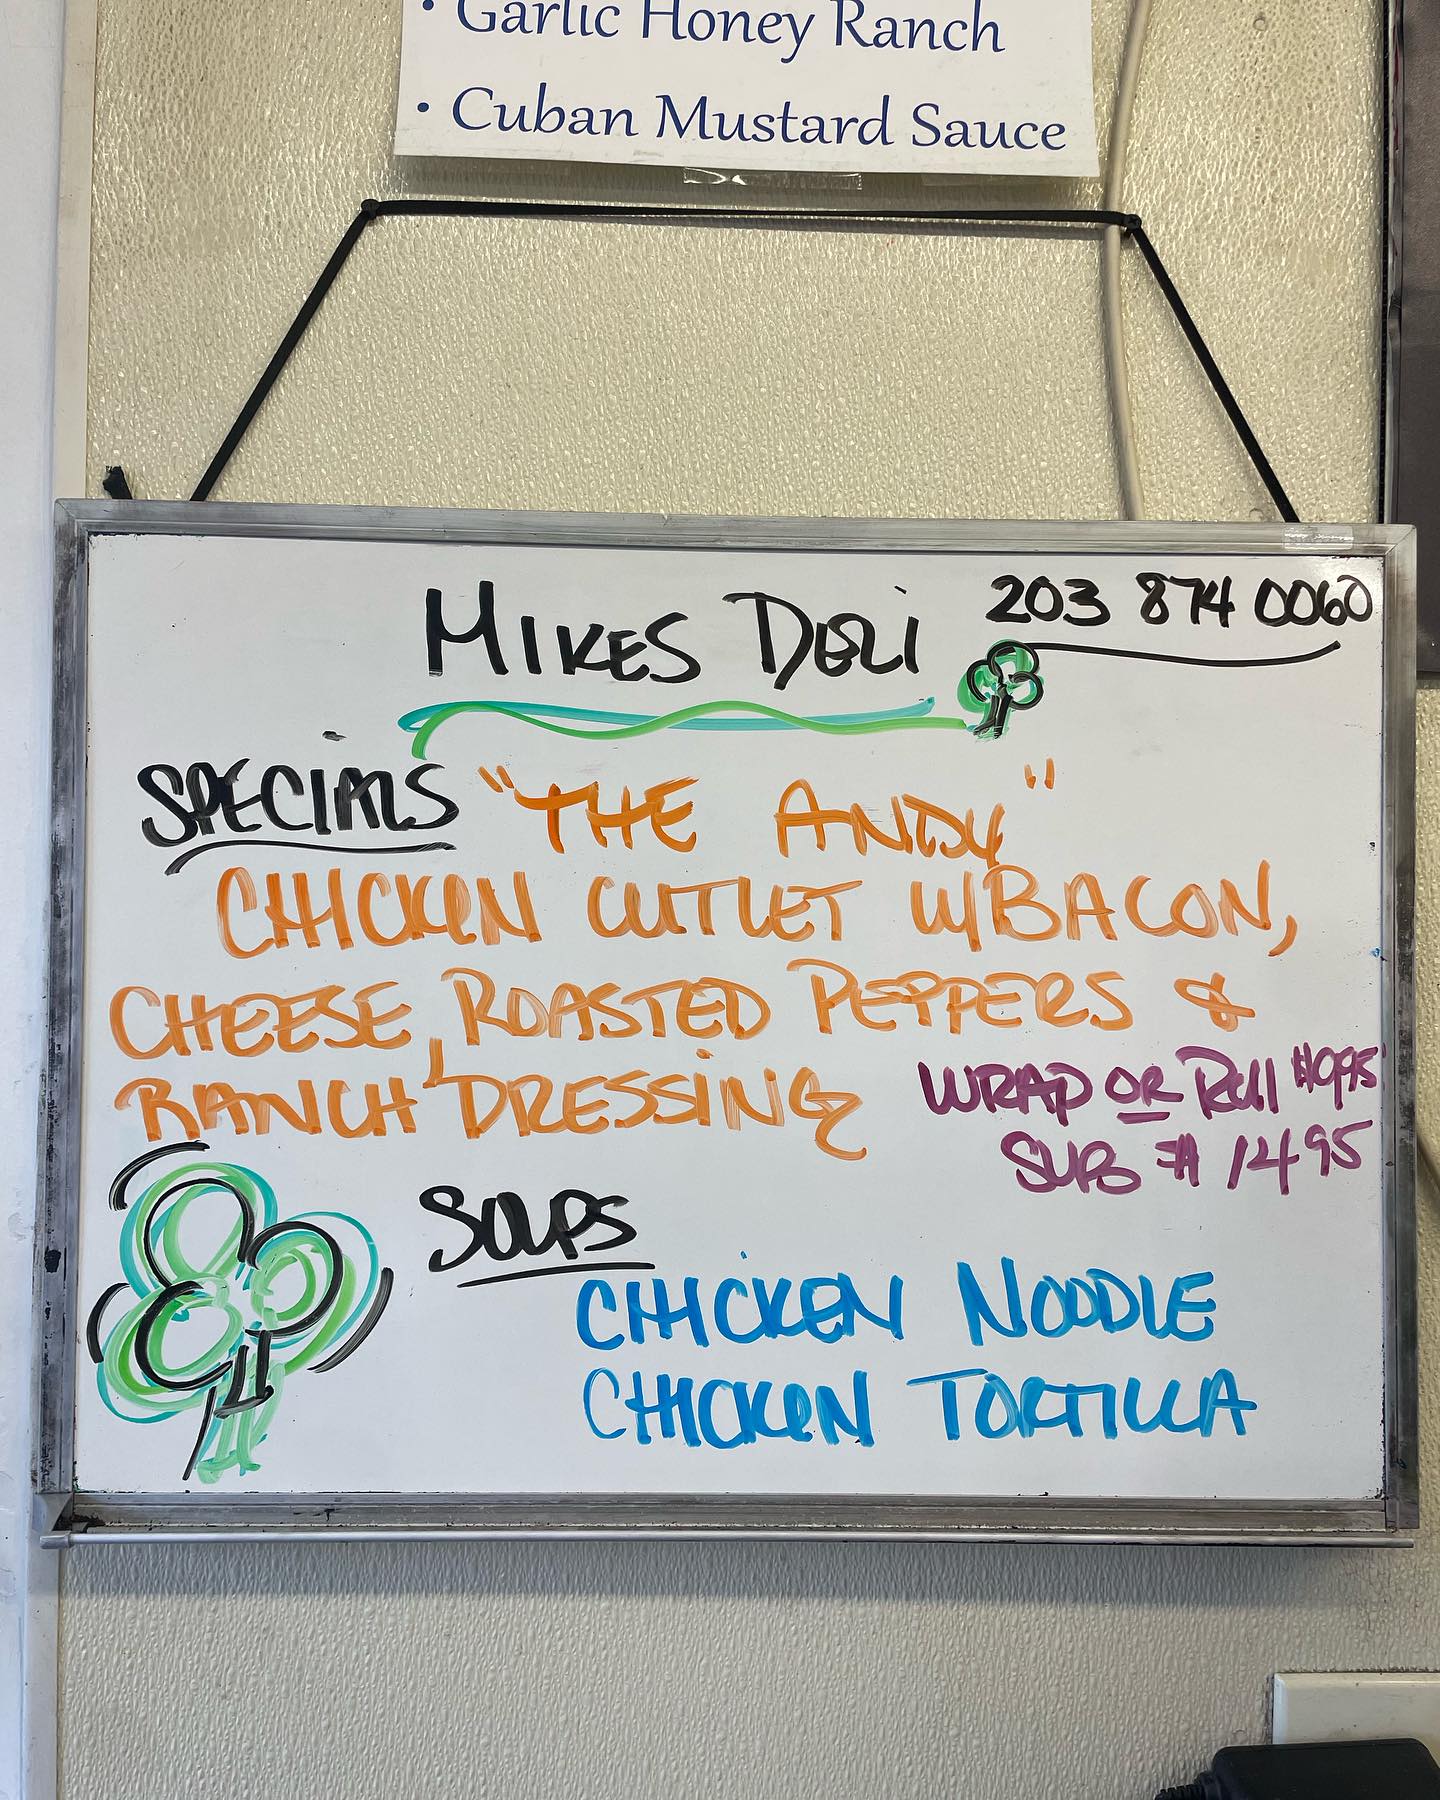 • Garlic Honey Ranch
• Cuban Mustard Sauce
MIKES DELI
203 874 0060
SPECIALS "THE ANDY"
CHICKEN CUTLET W/BACON,
CHEESE, ROASTED PEPPERS &
RANCH DRESSING
WRAP OR Roll $1095
SUB $ 1495
SOUPS
CHICKEN NOODLE
CHICKEN TORTILLA